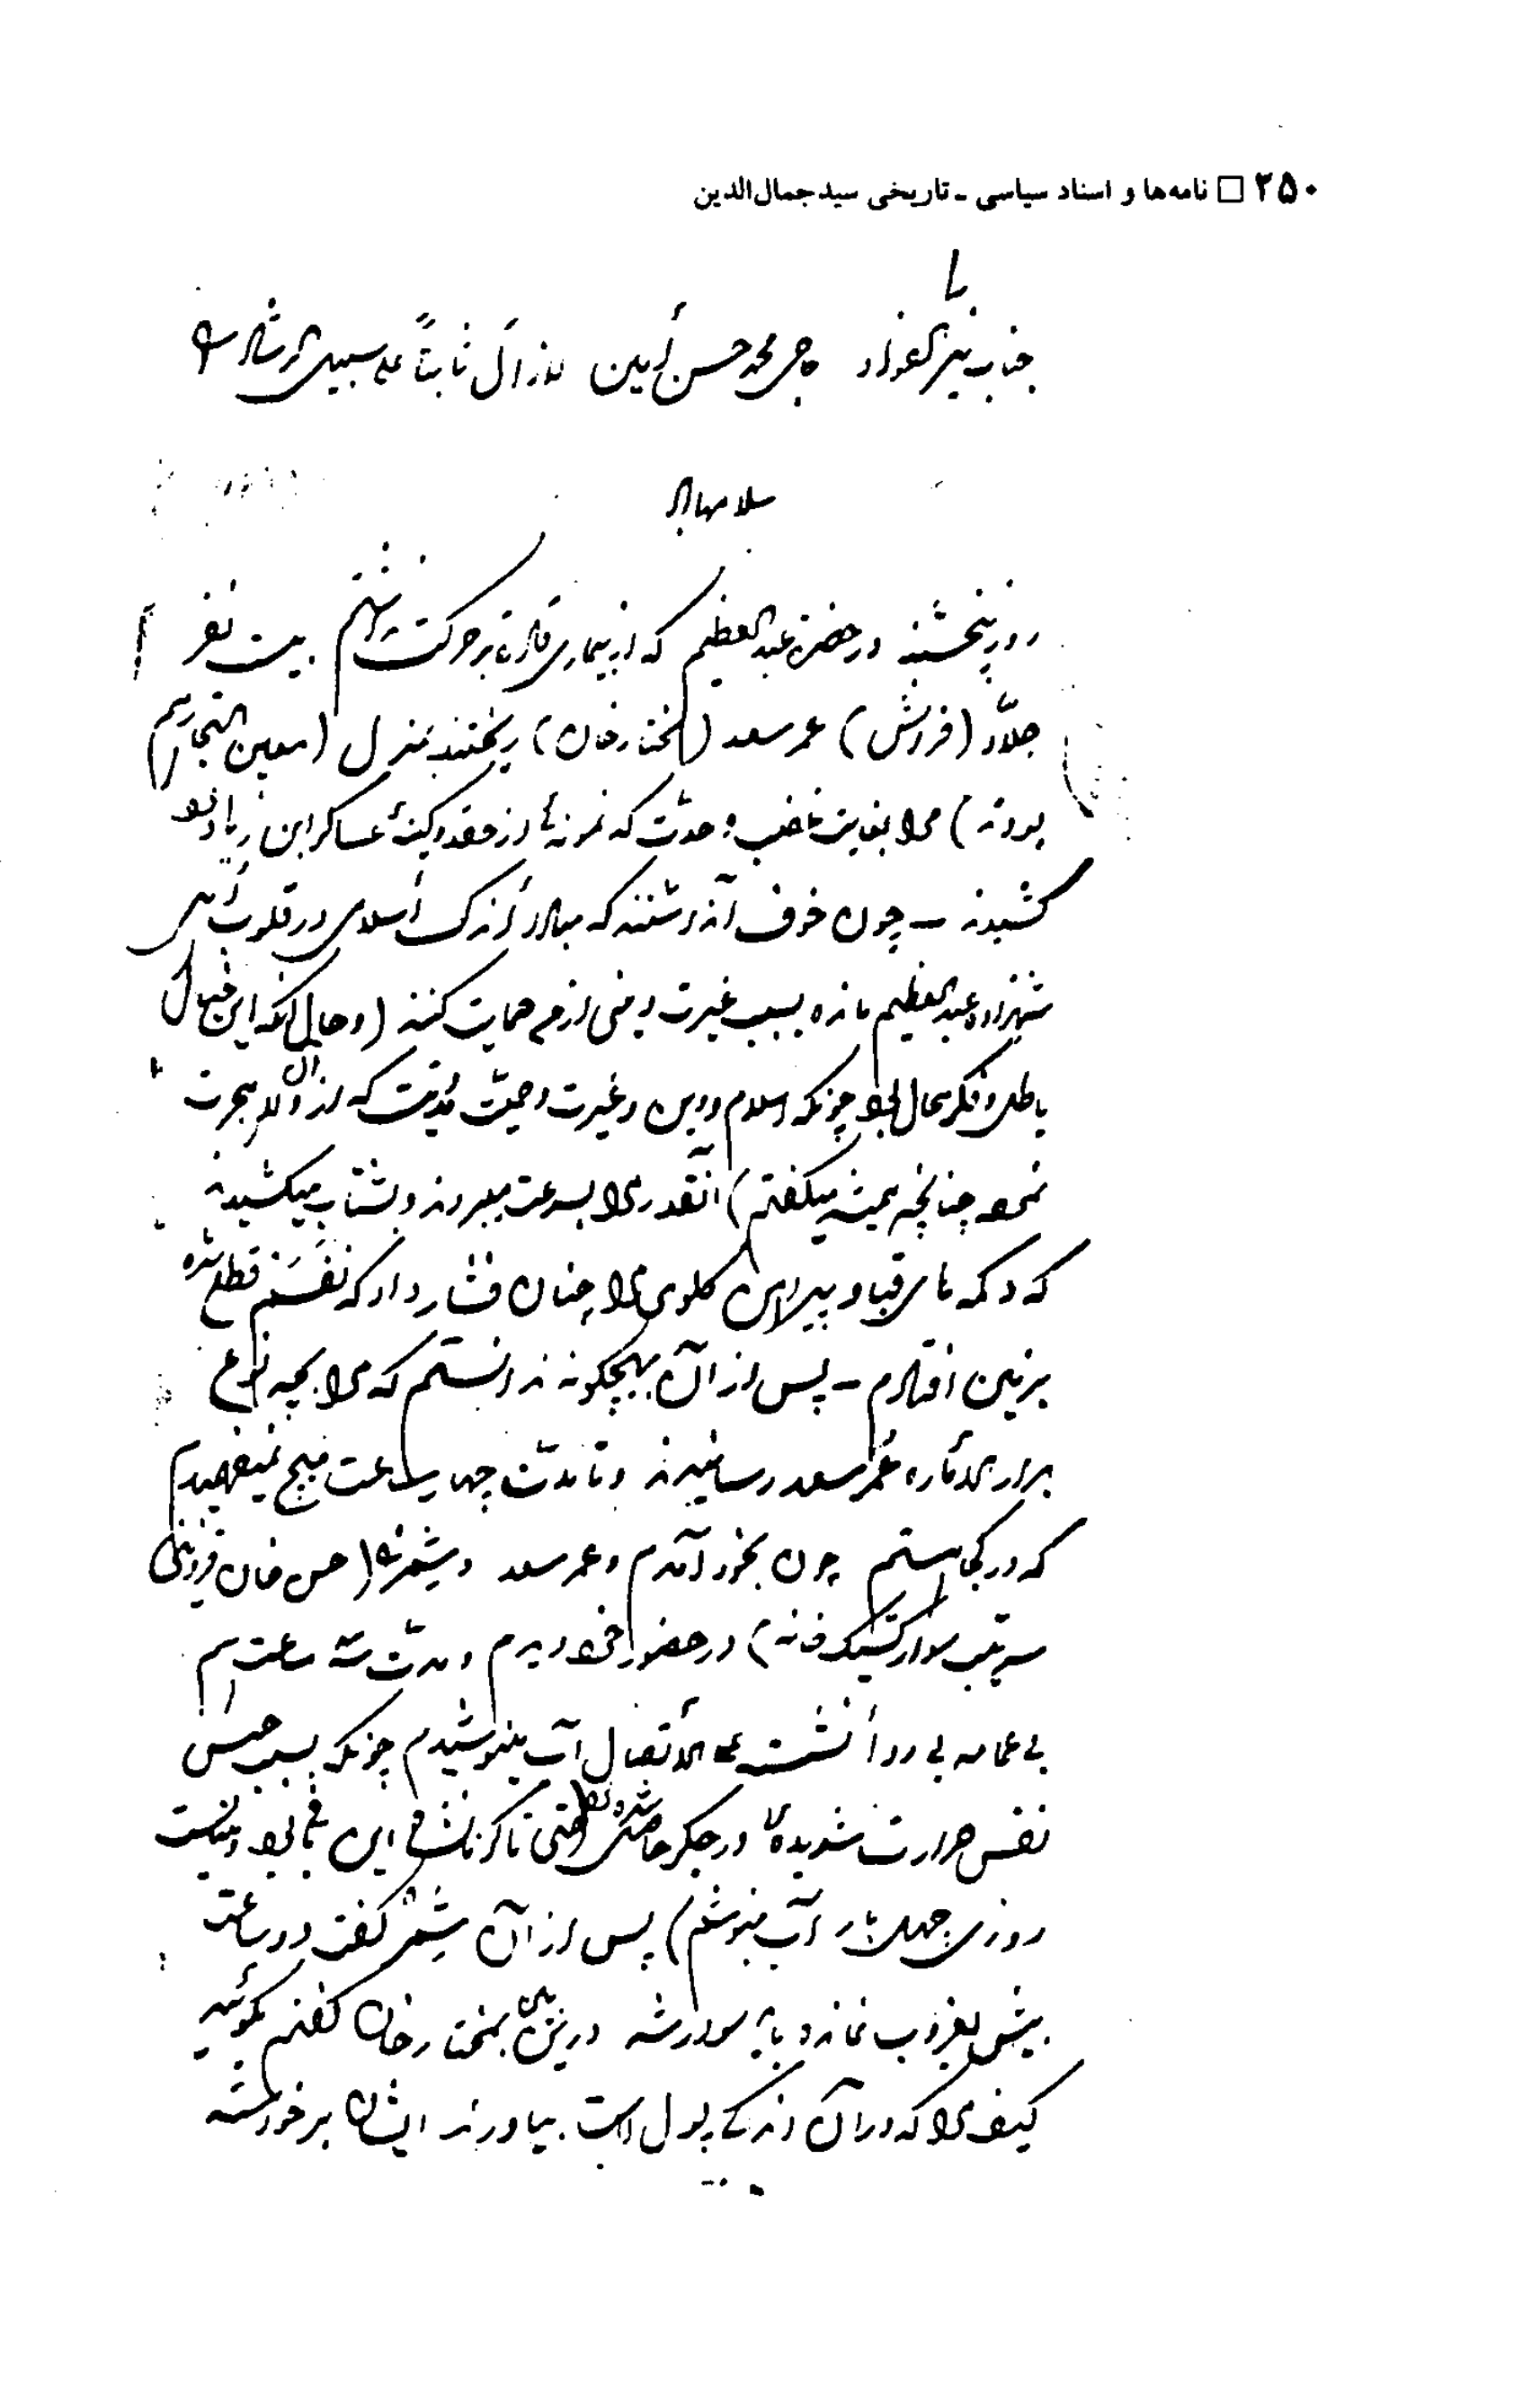 ۲۵۰ □ نامه‌ها و اسناد سیاسی - تاریخی سید جمال‌الدین
جناب حاجی محمد حسن أمین لازال ثابتاً علی سبیل الرشاد
سلامها
روز پنجشنبه در حضرت عبدالعظیم که از بیماری قادر بر حرکت نبودم بیست نفر
جلاّد (فراش) عمر سعد (مختارخان) ریختند بمنزل (معین التجار هم
بودند) مرا بغایت غضب و حدّت که نمونه‌ای از حقد و کینهٔ عساکر ابن زیاد بود
کشیدند – چون خوف آن داشتند که مبادا اندک اسلامی در قلوب أهل
شهزاده عبدالعظیم مانده بسبب غیرت دینی از من حمایت کنند (و حال آنکه این خیال
باطل و فکر محال بود چونکه اسلام و دین و غیرت و حمیّت مدتیست که از آن بلاد هجرت
نموده چنانچه همیشه میگفتم) آنقدر مرا بسرعت میبردند و بشتاب میکشیدند
که دکمه‌های قبا و پیراهن گلوی مرا چنان فشار داد که نفسم قطع شده
بزمین افتادم – پس از آن هیچگونه ندانستم که مرا بچه نوع
بدارالأماره عُمر سعد رسانیدند و تا مدّت چهار ساعت هیچ نمیفهمیدم
که در کجا هستم چون بخود آمدم و عمر سعد و شمر را (حسن خان قزوینی
سرتیپ سوار کشیک خانه) در حضور خود دیدم و مدّت سه ساعت هم
بی عمامه بی ردا نشسته علی الأتصال آب مینوشیدم چونکه بسبب حبس
نفس حرارت شدیده در جگر حاصل شده بود (حتی تا کرمانشاه این تب باقی بود و میبایست
روزی چهل بار آب بنوشم) پس از آن شمر گفت دو ساعت
بیش بغروب نمانده باید سوار شد در بین بمختارخان گفتم بگوئید
کیف مرا که در آن اندکی پول است بیاورند ایشان برخواسته